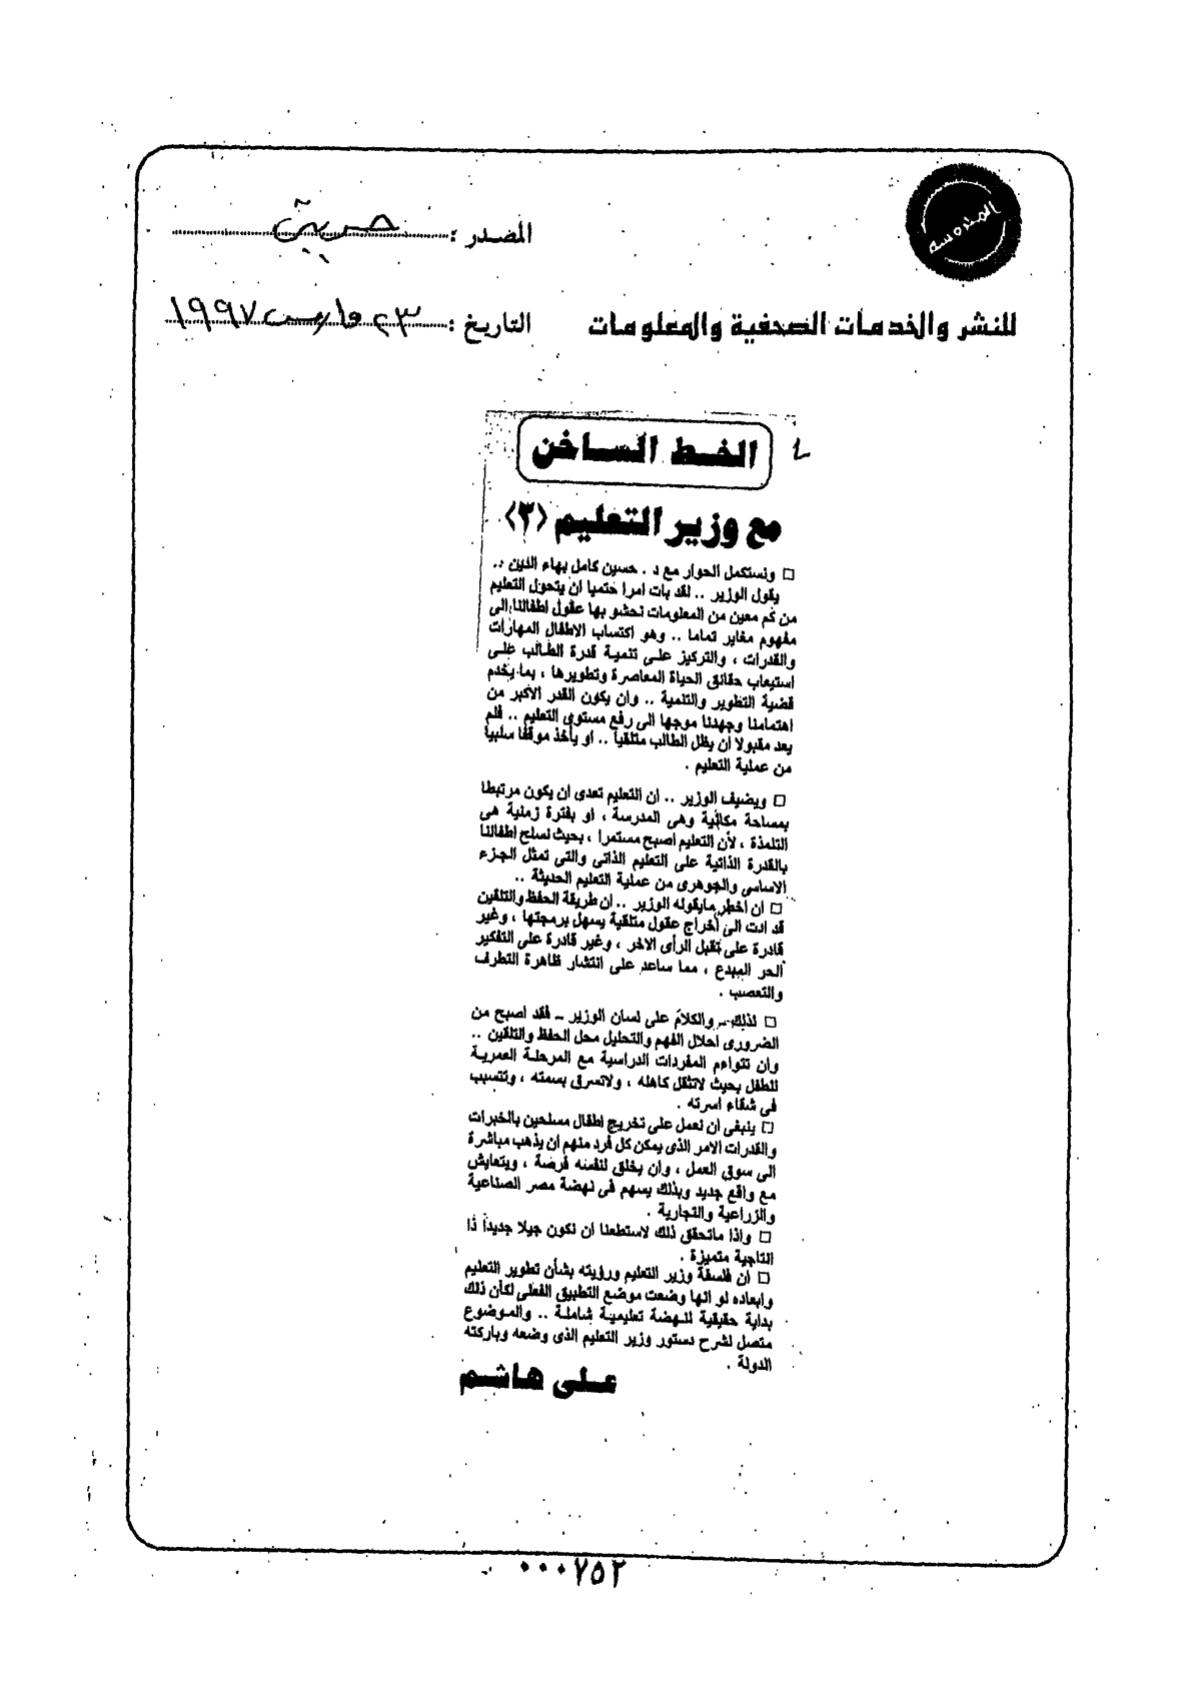 المحروسة
المصدر : حريتى
للنشر والخدمات الصحفية والمعلومات
التاريخ : ٢٣ مارس ١٩٩٧
الخط الساخن
مع وزير التعليم (٣)
□ ونستكمل الحوار مع د . حسين كامل بهاء الدين ..
يقول الوزير .. لقد بات امرا حتميا ان يتحول التعليم
من كم معين من المعلومات نحشو بها عقول اطفالنا الى
مفهوم مغاير تماما .. وهو اكتساب الاطفال المهارات
والقدرات ، والتركيز على تنمية قدرة الطالب على
استيعاب حقائق الحياة المعاصرة وتطويرها ، بما يخدم
قضية التطوير والتنمية .. وان يكون القدر الأكبر من
اهتمامنا وجهدنا موجها الى رفع مستوى التعليم .. فلم
يعد مقبولا أن يظل الطالب متلقيا .. او يأخذ موقفا سلبيا
من عملية التعليم .
□ ويضيف الوزير .. ان التعليم تعدى ان يكون مرتبطا
بمساحة مكانية وهى المدرسة ، او بفترة زمنية هى
التلمذة ، لأن التعليم اصبح مستمرا ، بحيث نسلح اطفالنا
بالقدرة الذاتية على التعليم الذاتى والتى تمثل الجزء
الاساسى والجوهرى من عملية التعليم الحديثة ..
□ ان اخطر مايقوله الوزير .. ان طريقة الحفظ والتلقين
قد ادت الى أخراج عقول متلقية يسهل برمجتها ، وغير
قادرة على تقبل الرأى الاخر ، وغير قادرة على التفكير
الحر المبدع ، مما ساعد على انتشار ظاهرة التطرف
والتعصب .
□ لذلك ــ والكلام على لسان الوزير ــ فقد اصبح من
الضرورى احلال الفهم والتحليل محل الحفظ والتلقين ..
وان تتواءم المفردات الدراسية مع المرحلة العمرية
للطفل بحيث لاتثقل كاهله ، ولاتسرق بسمته ، وتتسبب
فى شقاء اسرته .
□ ينبغى ان نعمل على تخريج اطفال مسلحين بالخبرات
والقدرات الامر الذى يمكن كل فرد منهم ان يذهب مباشرة
الى سوق العمل ، وان يخلق لنفسه فرصة ، ويتعايش
مع واقع جديد وبذلك يسهم فى نهضة مصر الصناعية
والزراعية والتجارية .
□ واذا ماتحقق ذلك لاستطعنا ان نكون جيلا جديدا ذا
انتاجية متميزة .
□ ان فلسفة وزير التعليم ورؤيته بشأن تطوير التعليم
وابعاده لو انها وضعت موضع التطبيق الفعلى لكان ذلك
بداية حقيقية لنهضة تعليمية شاملة .. والموضوع
متصل لشرح دستور وزير التعليم الذى وضعه وباركته
الدولة .
على هاشم
٠٠٠٧٥٢